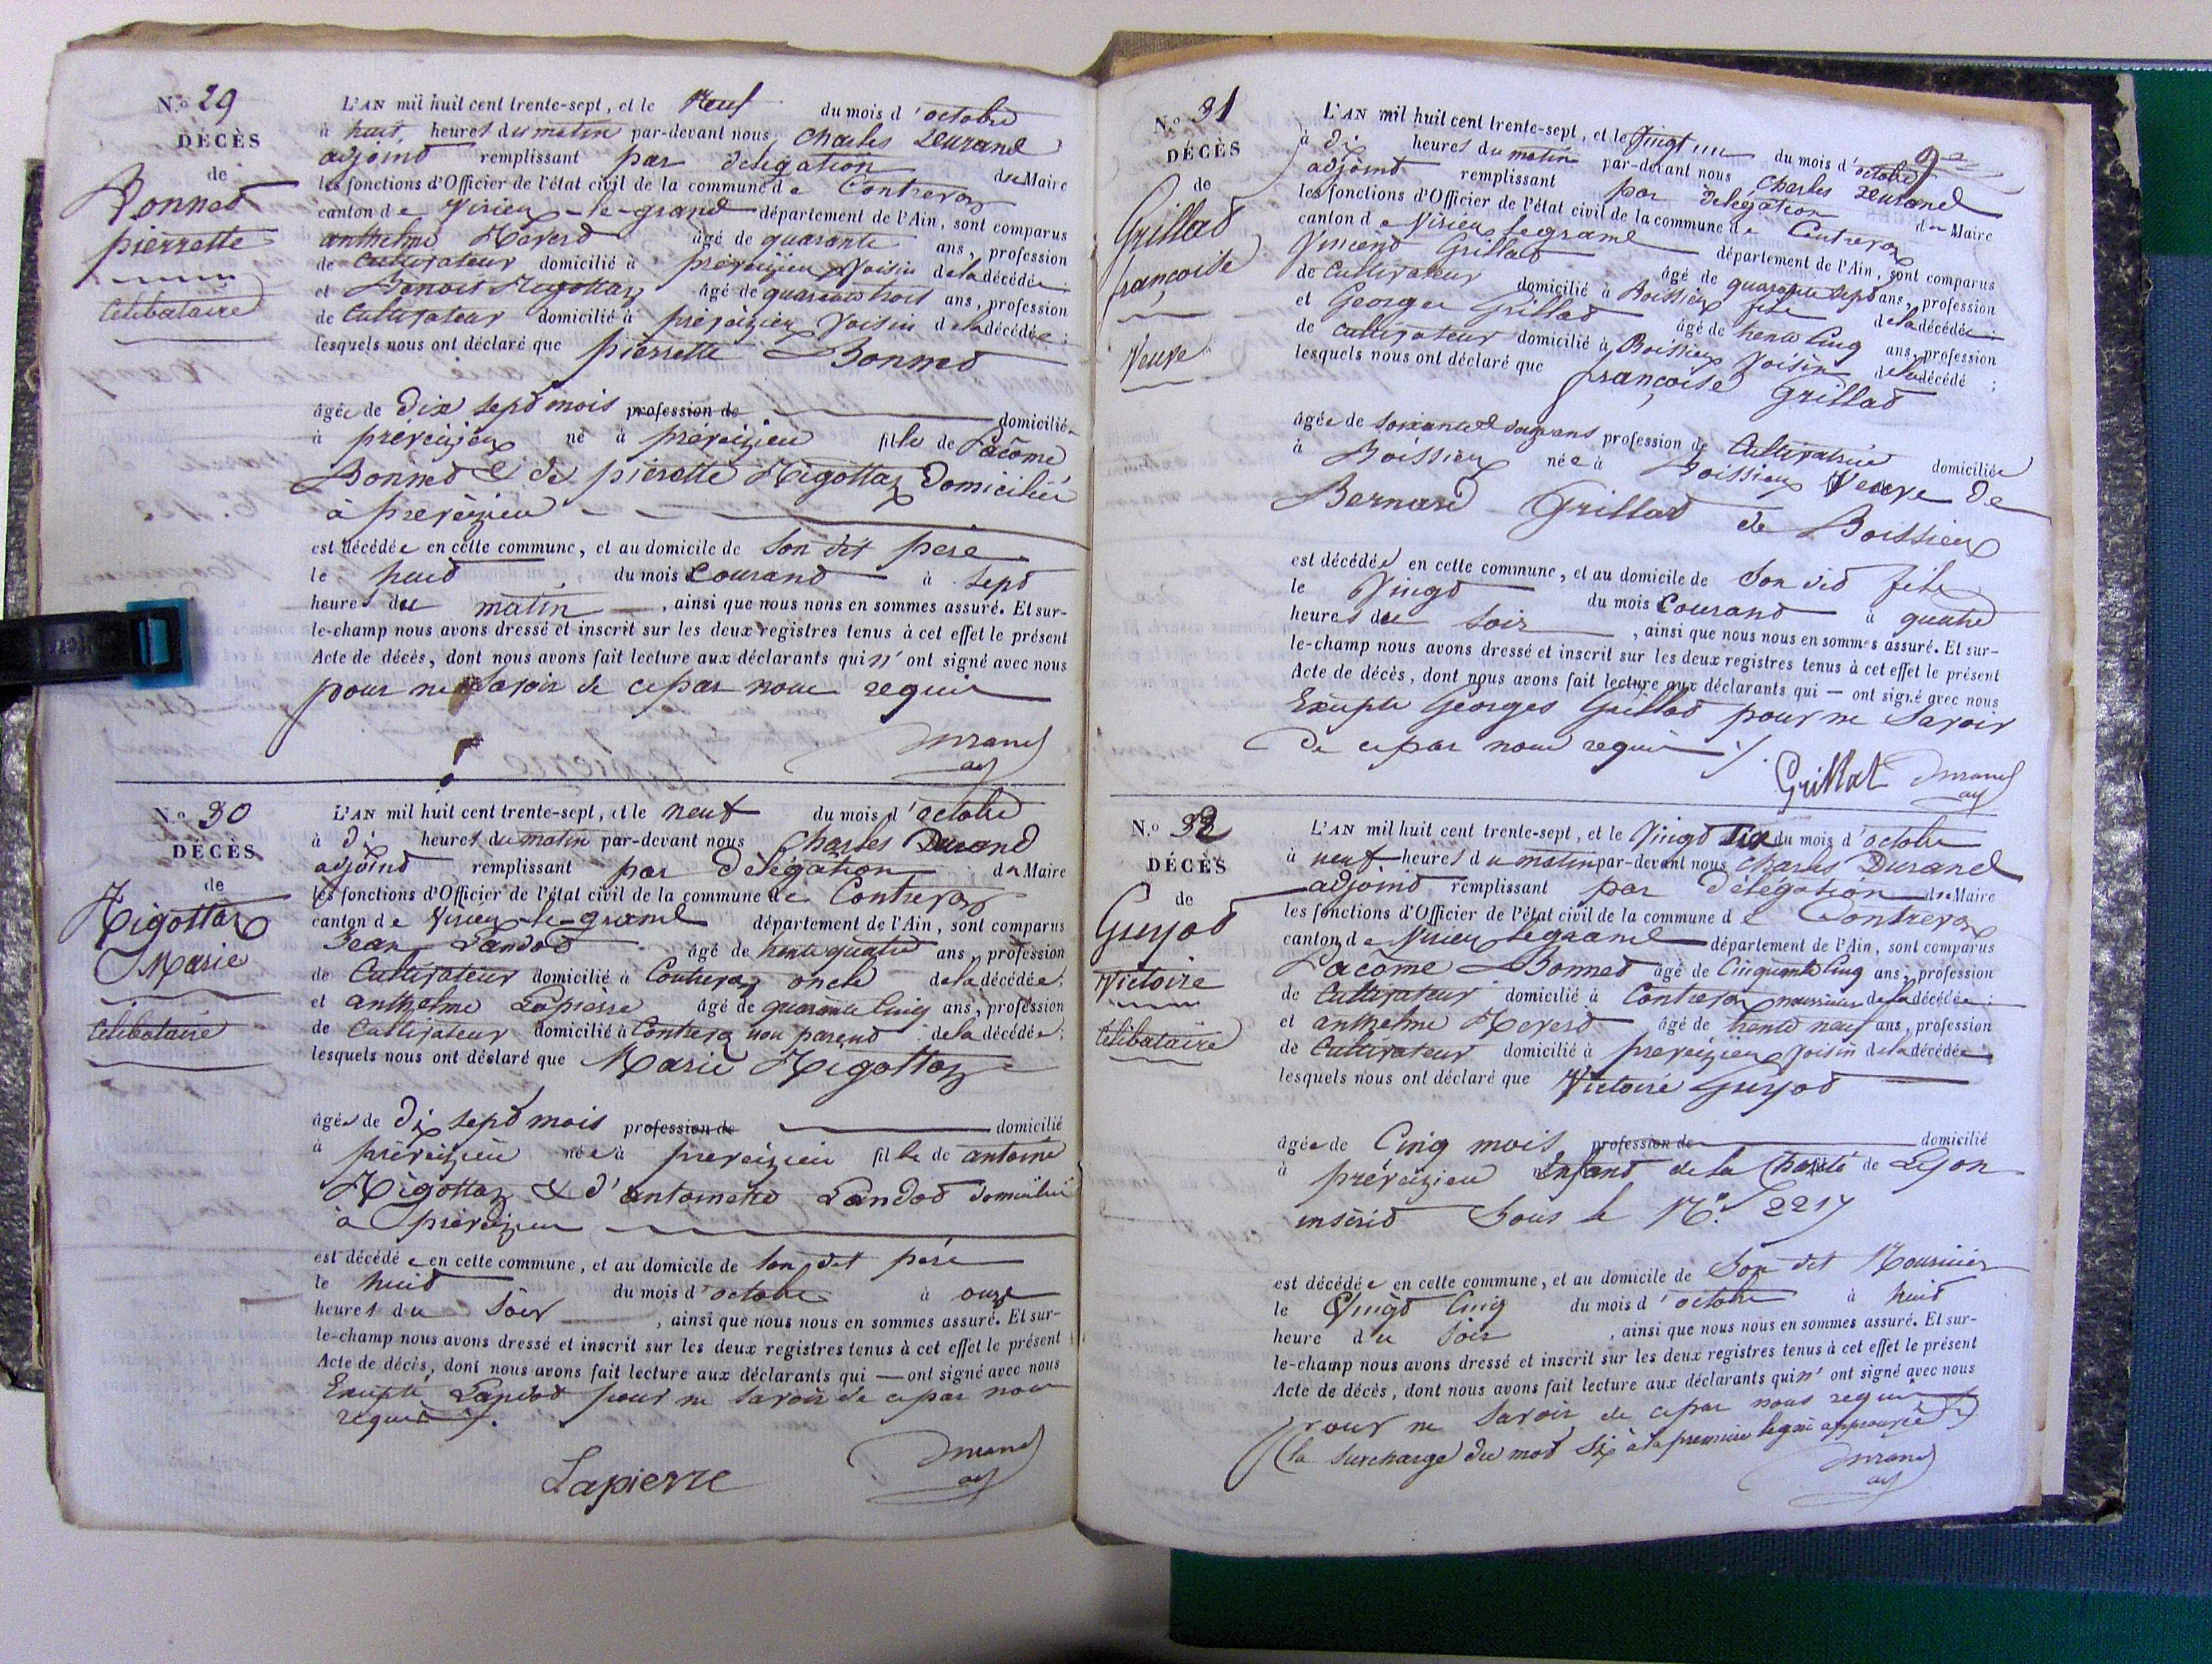 N.o 29
DÉCÈS
de
Bonnet
pierrette
Célibataire
L'AN mil huit cent trente-sept, et le Neuf du mois d'octobre
à huit heures du matin par-devant nous Charles Durand
adjoint remplissant par délégation du Maire
les fonctions d'Officier de l'état civil de la commune de Contrevoz
canton de Virieu-le-grand département de l'Ain, sont comparus
anthelme âgé de quarante ans, profession
de Cultivateur domicilié à préveizieu Voisin de la décédée;
et Benoit Rigottaz âgé de quarante trois ans, profession
de Cultivateur domicilié à préveizieu Voisin de la décédée;
lesquels nous ont déclaré que pierrette Bonnet
âgée de Dix sept mois profession de domicilié
à préveizieu né à préveizieu fille de Lacôme
Bonnet & de pierette Rigottaz Domiciliés
à preveizieu
est décédée en cette commune, et au domicile de Son dit pere
le huit du mois Courant à Sept
heures du matin, ainsi que nous nous en sommes assuré. Et sur-
le-champ nous avons dressé et inscrit sur les deux registres tenus à cet effet le présent
Acte de décès, dont nous avons fait lecture aux déclarants qui n'ont signé avec nous
pour ne Savoir de ce par nous requis
Durand
adj
N.o 30
DÉCÈS
de
Rigottaz
Marie
Célibataire
L'AN mil huit cent trente-sept, et le neuf du mois d'octobre
à dix heures du matin par-devant nous Charles Durand
adjoint remplissant par Délégation du Maire
les fonctions d'Officier de l'état civil de la commune de Contrevoz
canton de Virieu-le-grand département de l'Ain, sont comparus
Jean Landot âgé de trente quatre ans, profession
de Cultivateur domicilié à Contrevoz oncle de la décédée;
et anthelme Lapierre âgé de quarante Cinq ans, profession
de Cultivateur domicilié à Contrevoz non parent de la décédée;
lesquels nous ont déclaré que Marie Rigottaz
âgée de Dix sept mois profession de domicilié
à préveizieu née à preveizieu fille de antoine
Rigottaz & d'antoinette Landot domiciliés
à préveizieu
est décédée en cette commune, et au domicile de Son dit pere
le huit du mois d'octobre à onze
heures du Soir, ainsi que nous nous en sommes assuré. Et sur-
le-champ nous avons dressé et inscrit sur les deux registres tenus à cet effet le présent
Acte de décès, dont nous avons fait lecture aux déclarants qui — ont signé avec nous
Excepté Landot pour ne Savoir de ce par nous
requis
Lapierre
Durand
adj
N.o 31
DÉCÈS
de
Grillat
françoise
Veuve
L'AN mil huit cent trente-sept, et le Vingt un du mois d'octobre
à dix heures du matin par-devant nous Charles Durand
adjoint remplissant par Délégation du Maire
les fonctions d'Officier de l'état civil de la commune de Contrevoz
canton de Virieu le grand département de l'Ain, sont comparus
Vincent Grillat âgé de quarante Sept ans, profession
de Cultivateur domicilié à Boissieu fils de la décédée;
et Georges Grillat âgé de trente Cinq ans, profession
de Cultivateur domicilié à Boissieu Voisin de la décédé;
lesquels nous ont déclaré que françoise Grillat
âgée de ans profession de Cultivatrice domiciliée
à Boissieu née à Boissieu Veuve de
Bernard Grillat de Boissieu
est décédée en cette commune, et au domicile de Son dit fils
le Vingt du mois Courant à quatre
heures du Soir, ainsi que nous nous en sommes assuré. Et sur-
le-champ nous avons dressé et inscrit sur les deux registres tenus à cet effet le présent
Acte de décès, dont nous avons fait lecture aux déclarants qui — ont signé avec nous
Excepté Georges Grillat pour ne Savoir
de ce par nous requis
Grillat Durand
adj
N.o 32
DÉCÈS
de
Guyot
Victoire
Célibataire
L'AN mil huit cent trente-sept, et le Vingt Six du mois d'octobre
à neuf heures du matin par-devant nous Charles Durand
adjoint remplissant par délégation du Maire
les fonctions d'Officier de l'état civil de la commune de Contrevoz
canton de Virieu le grand département de l'Ain, sont comparus
Lacôme Bonnet âgé de Cinquante Cinq ans, profession
de Cultivateur domicilié à Contrevoz nourricier de la décédée;
et anthelme âgé de trente neuf ans, profession
de Cultivateur domicilié à preveizieu Voisin de la décédée;
lesquels nous ont déclaré que Victoire Guyot
âgée de Cinq mois profession de domicilié
à préveizieu Enfant de la Charité de Lyon
inscrit Sous le N.o 2217
est décédée en cette commune, et au domicile de Son dit Nourricier
le Vingt Cinq du mois d'octobre à huit
heure du Soir, ainsi que nous nous en sommes assuré. Et sur-
le-champ nous avons dressé et inscrit sur les deux registres tenus à cet effet le présent
Acte de décès, dont nous avons fait lecture aux déclarants qui n'ont signé avec nous
pour ne Savoir de ce par nous requis
(la Surcharge du mot Six à la premiere ligne approuvée)
Durand
adj